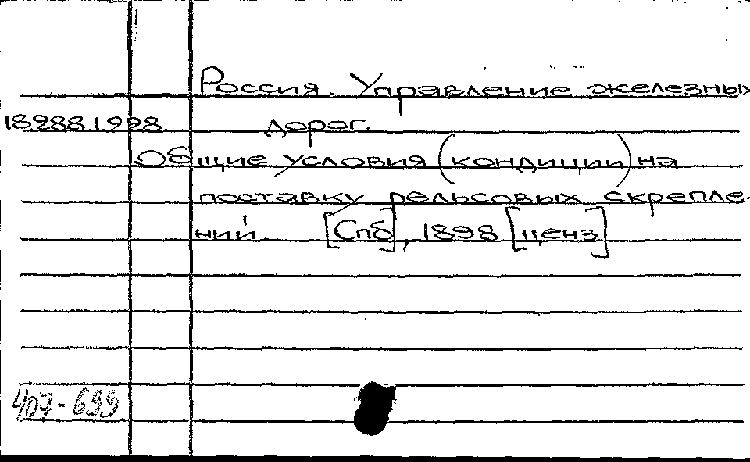 Россия. Управление железных
189881998 дорог.
Общие условия (кондиции) на
поставку рельсовых скрепле-
ний. [Спб], 1898 [ценз]
407-699